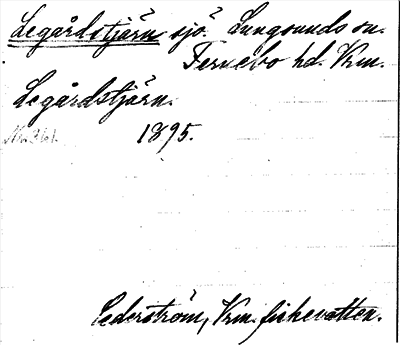 Legårdstjärn sjö. Lungsunds sn.
Fernebo hd. Vrm.
Legårdstjärn.
1895.
Cederström, Vrm. fiskevatten.